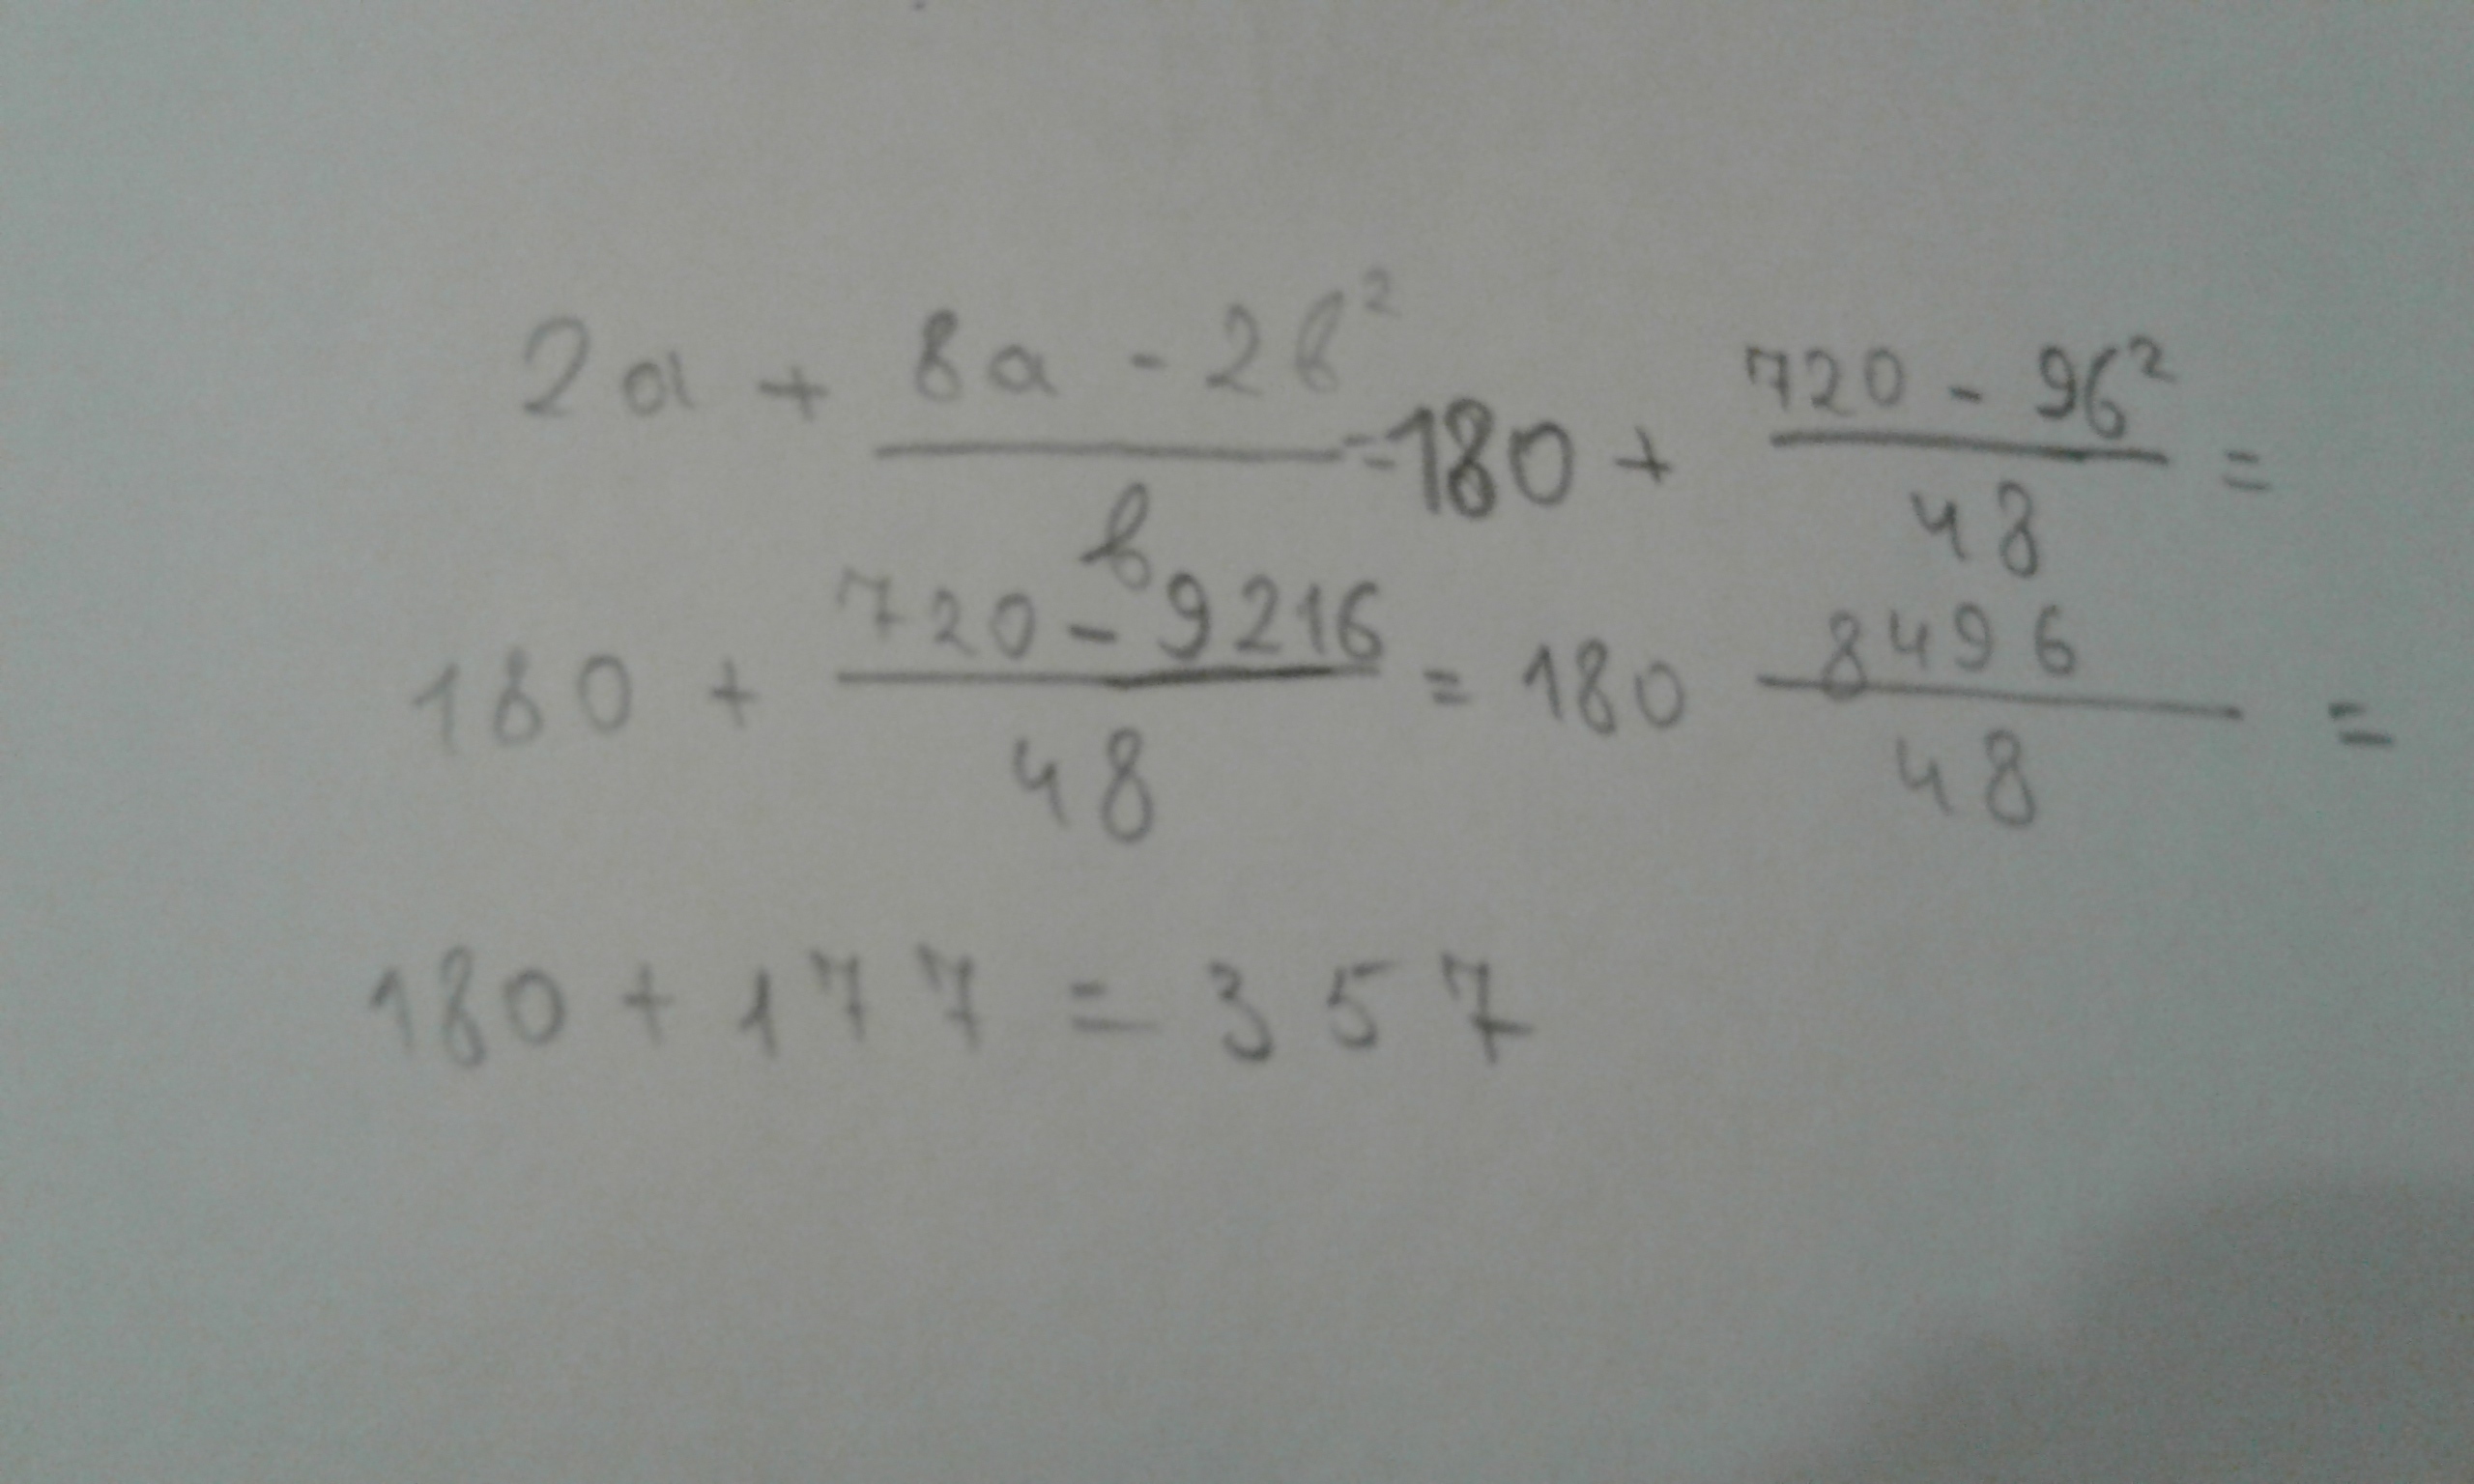 2a + (8a - 2в²)/в = 180 + (720 - 96²)/48 =
180 + (720 - 9216)/48 = 180 8496/48 =
180 + 177 = 357